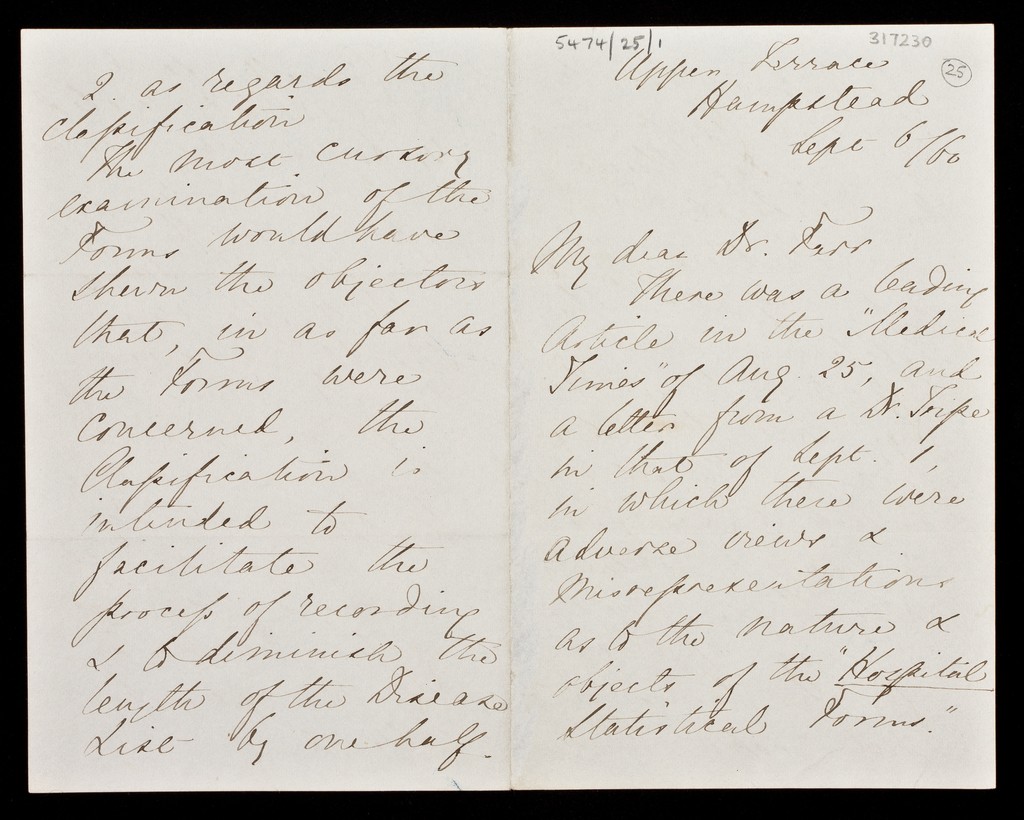 5474/25/1
317230
25
Upper Terrace
Hampstead
Sept 6/60
My dear Dr. Farr
There was a leading
Article in the "Medical
Times" of Aug. 25, and
a letter from a Dr. Tripe
in that of Sept. 1,
in which there were
adverse views &
misrepresentations
as to the nature &
objects of the "Hospital
Statistical Forms."
2. as regards the
Classification
The most cursory
examination of the
Forms would have
shewn the objectors
that, in as far as
the Forms were
concerned, the
Classification is
intended to
facilitate the
process of recording
& to diminish the
length of the Disease
List by one half.